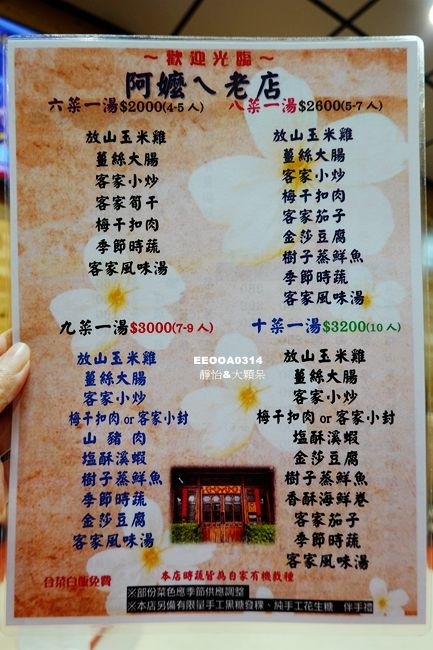 ～歡迎光臨～
阿嬤ㄟ老店
六菜一湯$2000(4-5人)
放山玉米雞
薑絲大腸
客家小炒
客家筍干
梅干扣肉
季節時蔬
客家風味湯
八菜一湯$2600(5-7人)
放山玉米雞
薑絲大腸
客家小炒
梅干扣肉
客家茄子
金莎豆腐
樹子蒸鮮魚
季節時蔬
客家風味湯
九菜一湯$3000(7-9人)
放山玉米雞
薑絲大腸
客家小炒
梅干扣肉 or 客家小封
山豬肉
塩酥溪蝦
樹子蒸鮮魚
季節時蔬
金莎豆腐
客家風味湯
十菜一湯$3200(10人)
放山玉米雞
薑絲大腸
客家小炒
梅干扣肉 or 客家小封
塩酥溪蝦
金莎豆腐
樹子蒸鮮魚
香酥海鮮卷
客家茄子
季節時蔬
客家風味湯
EEOOA0314
靜怡&大顆呆
合菜白飯免費
本店時蔬皆為自家有機栽種
※部份菜色應季節供應調整
※本店另備有限量手工黑糖發粿、純手工花生糖 伴手禮